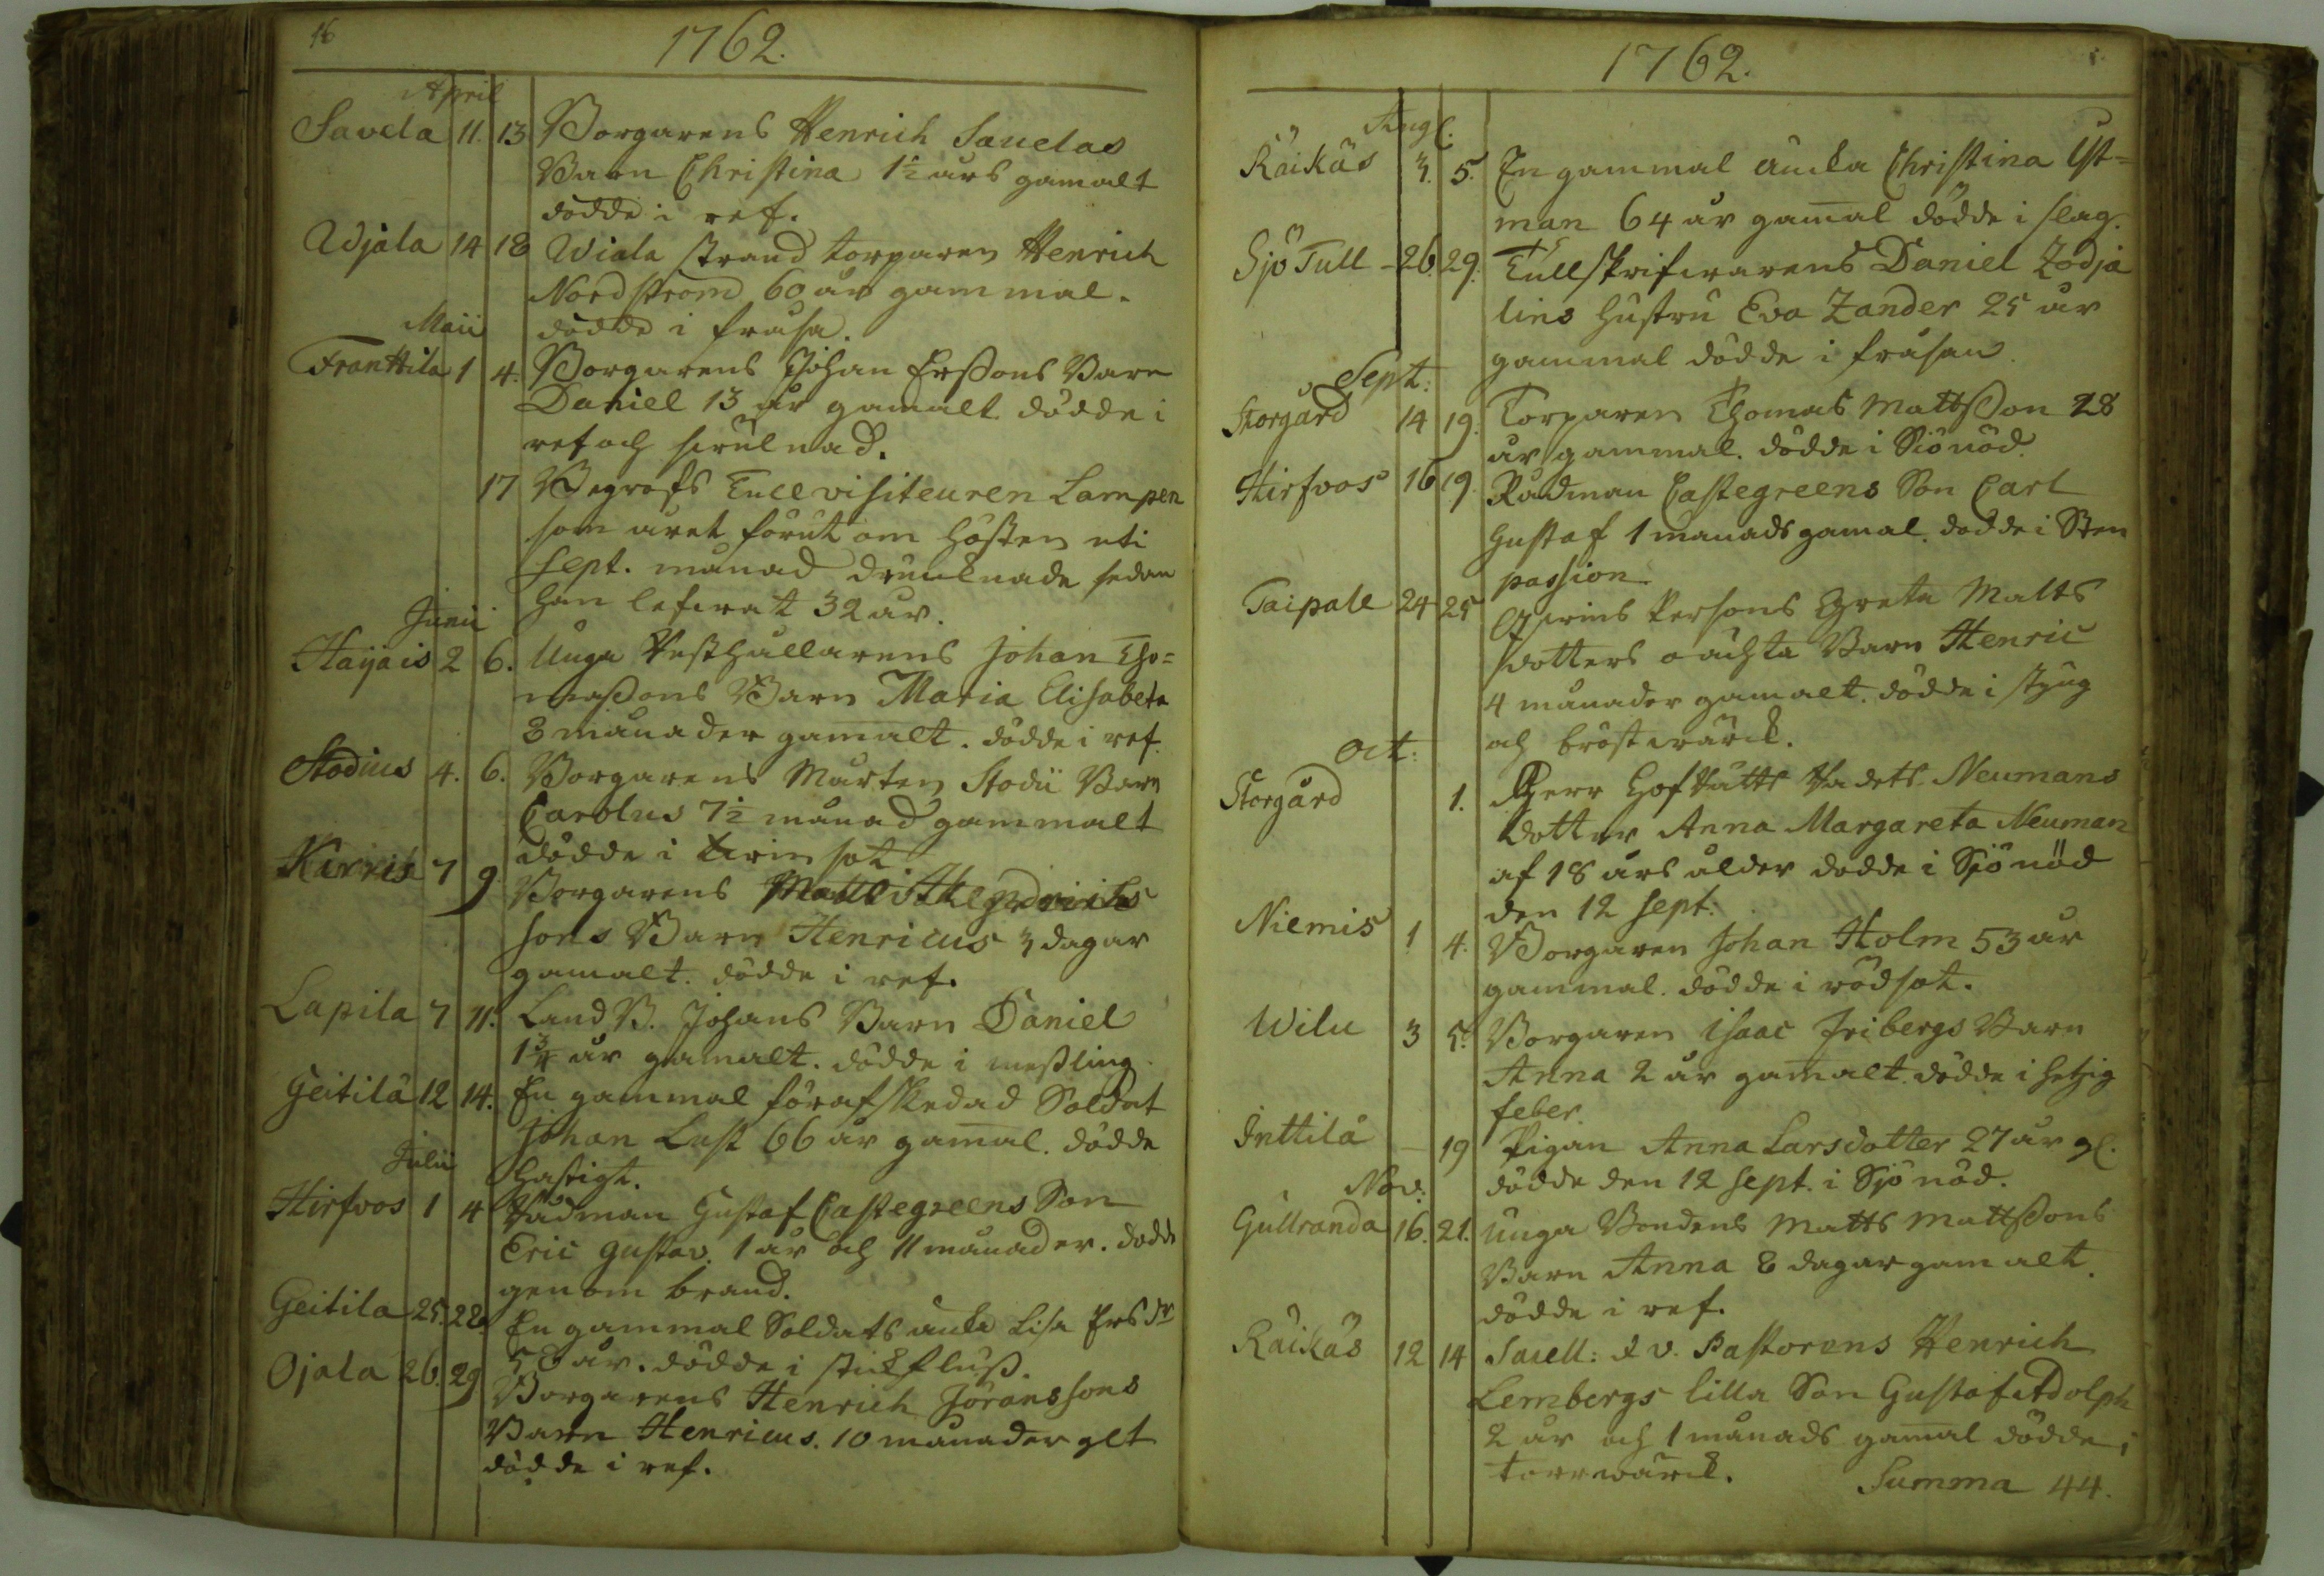 16
1762.
April
Savela 11. 13 Borgarens Henrich Sauelas
Barn Christina 1½ åhrs gamalt
dödde i ref.
Wjala 14 18 Wiala strand torparen Henrich
Nordstrom 60 åhr gammal.
dödde i fråsa.
Maii
Franttila 1 4. Borgarens Johan Ersons Barn
Daniel 13 åhr gamalt dödde i
ref och
17 Begrofs Tullvisiteuren Lampen
som året förut om hösten uti
Sept. månad drunknade sedan
han lefwat 32 åhr.
Junii
Haijais 2 6. Unga Testhållarens Johan Tho=
massons Barn Maria Elisabeta
8 månader gamalt. dödde i ref.
Stodius 4. 6. Borgarens Mårten Stodii Barn
Carolus 7½ månad gammalt
dödde i twinsot
Kärris 7 9 Borgarens Matts Hendrichs
sons Barn Henricus 3 dagar
gamalt. dödde i ref.
Lapila 7 11. Land B. Johans Barn Daniel
1¾ åhr gamalt. dödde i messling.
Geitilä 12 14. En gammal förafskedad Soldat
Johan Lust 66 åhr gamal. dödde
hastigt.
Julii
Hirfvos 1 4 Rådman Gustaf Castegreens Son
Eric Gustav. 1 åhr och 11 månader. dödde
genom brand.
Geitila 25. 28. En gammal Soldats anka Lisa Ersdr
58 åhr. dödde i stickfluss.
Ojala 26. 29 Borgarens Henrich Jöranssons
Barn Henricus. 10 månader glt
dödde i ref.
1762.
Aug.
Räikäs 3. 5. En gammal ancka Christina Ust=
man 64 åhr gamal dödde i slag.
Sjö Tull 26. 29. Tullskrifwarens Daniel Zodja
lins hustru Eva Zander 25 åhr
gammal dödde i fråsan.
Sept:
Storgård 14 19. Torparen Thomas Mattsson 28
åhr gammal. dödde i Siönöd.
Hirfvos 16 19. Rådman Castegreens Son Carl
Gustaf 1 månads gamal. dödde i Sten
passion.
Taipale 24 25 Qwins Persons Greta Matts
dotters oächta Barn Henric
4 månader gamalt. dödde i styng
och bröstwärck.
Oct:
Storgård 1. Herr Hof Rätts Rådets Neumans
dotter Anna Margareta Neuman
af 18 åhrs ålder dödde i Sjönöd
den 12 Sept:
Niemis 1 4. Borgaren Johan Holm 53 åhr
gammal. dödde i rödsot.
Wilu 3 5. Borgaren Isaac Fribergs Barn
Anna 2 åhr gamalt. dödde i hetzig
feber.
Inttilä 19 Pigan Anna Larsdotter 27 åhr gl.
dödde den 12 Sept. i Sjönöd.
Nov:
Gullranda 16. 21. Unga Bondens Matts Mattssons
Barn Anna 8 dagar gamalt.
dödde i ref.
Räikäs 12 14 Sacell: & v. Pastorens Henrich
Lembergs lilla Son Gustaf Adolph
2 åhr och 1 månads gamal dödde i
torrwärck.
Summa 44.